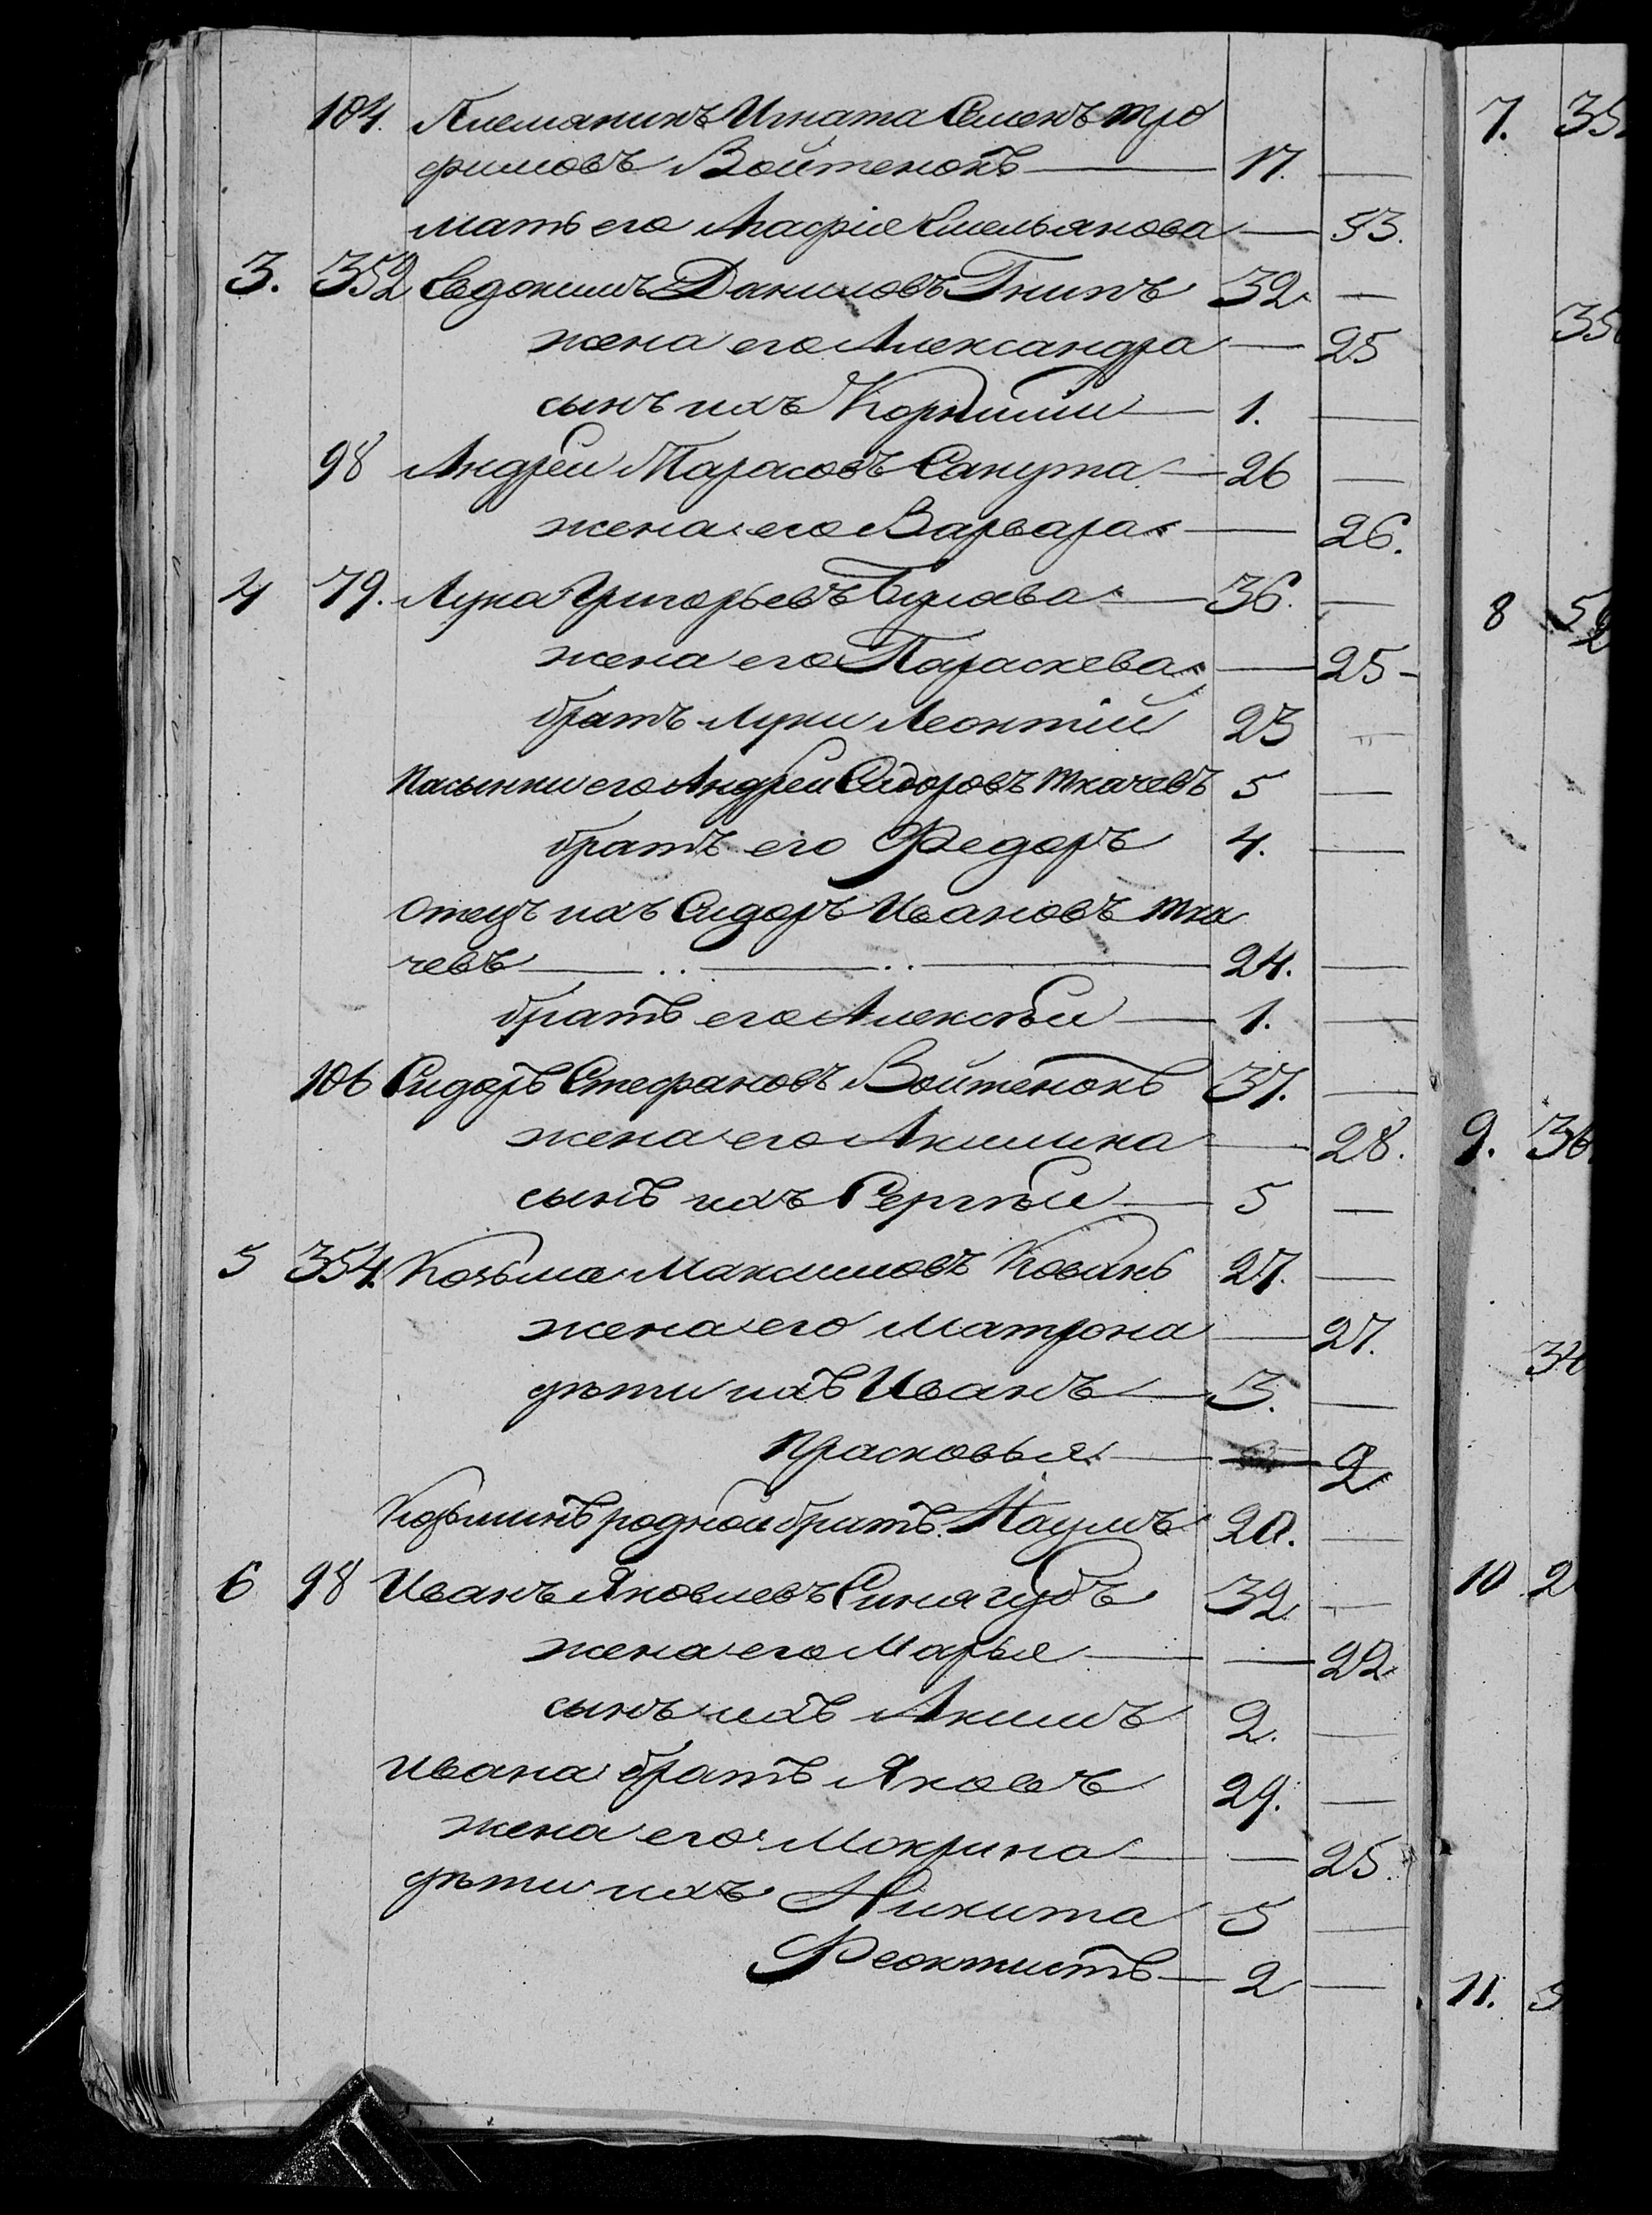 104. Племянникъ Игната Семенъ Тро
фимовъ Войтенокъ — 17. —
мать его Агафія Емельянова — 53.
3. 352 Евдокимъ Даниловъ Гнипъ 32. —
жена его Александра — 25
сынъ ихъ Корнилій — 1. —
98 Андрей Тарасовъ Сакута — 26 —
жена его Варвара — 26.
4 79. Лука Григорьевъ Булава — 36. —
жена его Параскева — 25 -
братъ Луки Леонтій 23 —
Пасынки его Андрей Сидоровъ Ткачевъ 5 —
братъ его Федоръ 4. —
Отецъ ихъ Сидоръ Ивановъ Тка
чевъ — .. — .. — 24. —
братъ его Алексѣй — 1. —
106 Сидоръ Стефановъ Войтенокъ 37. —
жена его Акилина — 28.
сынъ ихъ Сергѣй — 5 —
5 354. Козьма Максимовъ Кованъ 27. —
жена его Матрона — 27.
дѣти ихъ Иванъ — 3. —
Прасковья — 2
Козьминъ родной братъ Наумъ 20. —
6 98 Иванъ Яковлевъ Синягубъ 32 —
жена его Марья — 22
сынъ ихъ Акимъ 2. —
Ивана братъ Яковъ 29. —
жена его Мокрина — 25.
дѣти ихъ Никита 5 —
Феоктистъ — 2 —
7.
8
9.
10
11.